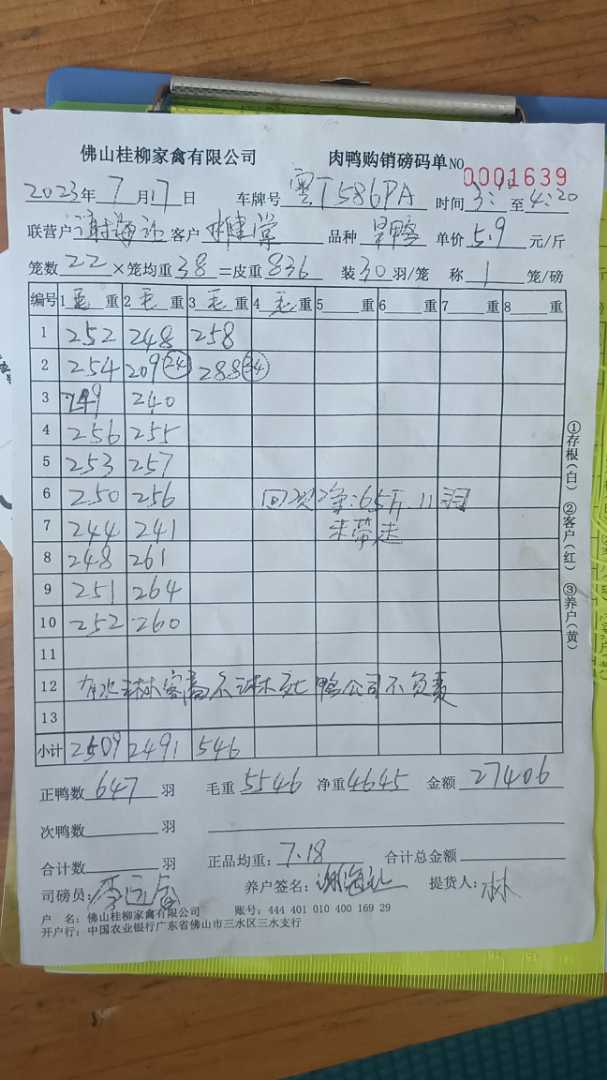 佛山桂柳家禽有限公司 肉鸭购销磅码单 NO 0001639
2023年 7 月 17 日 车牌号 粤T586PA 时间 3: 至 4:20
联营户 谢海 客户 品种 鸭 单价 5.9 元/斤
笼数 22 ×笼均重 38 =皮重 836 装 30 羽/笼 称 1 笼/磅
编号 1 毛 重 2 毛 重 3 毛 重 4 毛 重 5 重 6 重 7 重 8 重
1 252 248 258
2 254 209 (24) 288 (34)
3 249 240
4 256 255
5 253 257
6 250 256 净:65斤 11羽
7 244 241 未带走
8 248 261
9 251 264
10 252 260
11
12 有水淋客高不淋死鸭公司不负责
13
小计 2509 2491 546
正鸭数 647 羽 毛重 5546 净重 4645 金额 27406
次鸭数 羽
合计数 羽 正品均重: 7.18 合计总金额
司磅员: 养户签名: 谢海 提货人: 林
户 名: 佛山桂柳家禽有限公司 账号: 444 401 010 400 169 29
开户行: 中国农业银行广东省佛山市三水区三水支行
①存根(白) ②客户(红) ③养户(黄)